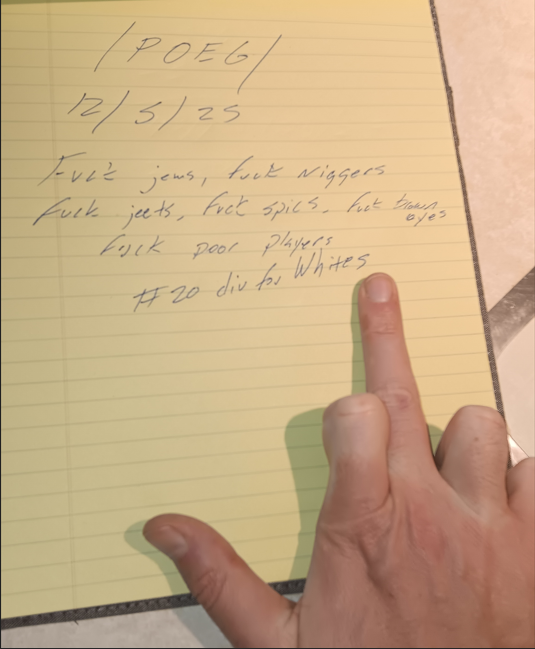 /POEG/
12/5/25
Fuck jews, fuck niggers
Fuck jeets, fuck spics, fuck brown eyes
fuck poor players
#20 div for Whites